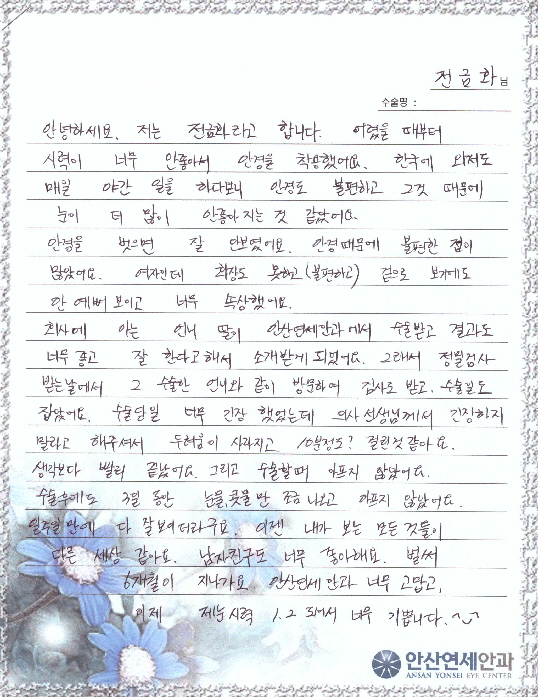 전금화님
수술명 :
안녕하세요. 저는 전금화라고 합니다. 어렸을 때부터
시력이 너무 안좋아서 안경을 착용했어요. 한국에 와서도
매일 야간 일을 하다보니 안경도 불편하고 그것 때문에
눈이 더 많이 안좋아 지는 것 같았어요.
안경을 벗으면 잘 안보였어요. 안경때문에 불편한 점이
많았어요. 여자인데 화장도 못하고(불편하고) 겉으로 보기에도
안 예뻐 보이고 너무 속상했어요.
회사에 아는 언니 딸이 안산연세안과에서 수술받고 결과도
너무 좋고 잘 한다고해서 소개받게 되었어요. 그래서 정밀검사
받는날에서 그 수술한 언니와 같이 방문하여 검사도 받고, 수술일도
잡았어요. 수술당일 너무 긴장 했었는데 의사선생님께서 긴장하지
말라고 해주셔서 두려움이 사라지고 10분정도? 걸린것 같아요.
생각보다 빨리 끝났어요. 그리고 수술할때 아프지 않았어요.
수술후에도 3일 동안 눈물,콧물만 조금 나오고 아프지 않았어요.
일주일만에 다 잘보여더라구요. 이젠 내가 보는 모든것들이
다른 세상 같아요. 남자친구도 너무 좋아해요. 벌써
6개월이 지나가요 안산연세안과 너무 고맙고,
이제 제눈시력 1.2 되어서 너무 기쁩니다.^~^
안산연세안과
ANSAN YONSEI EYE CENTER